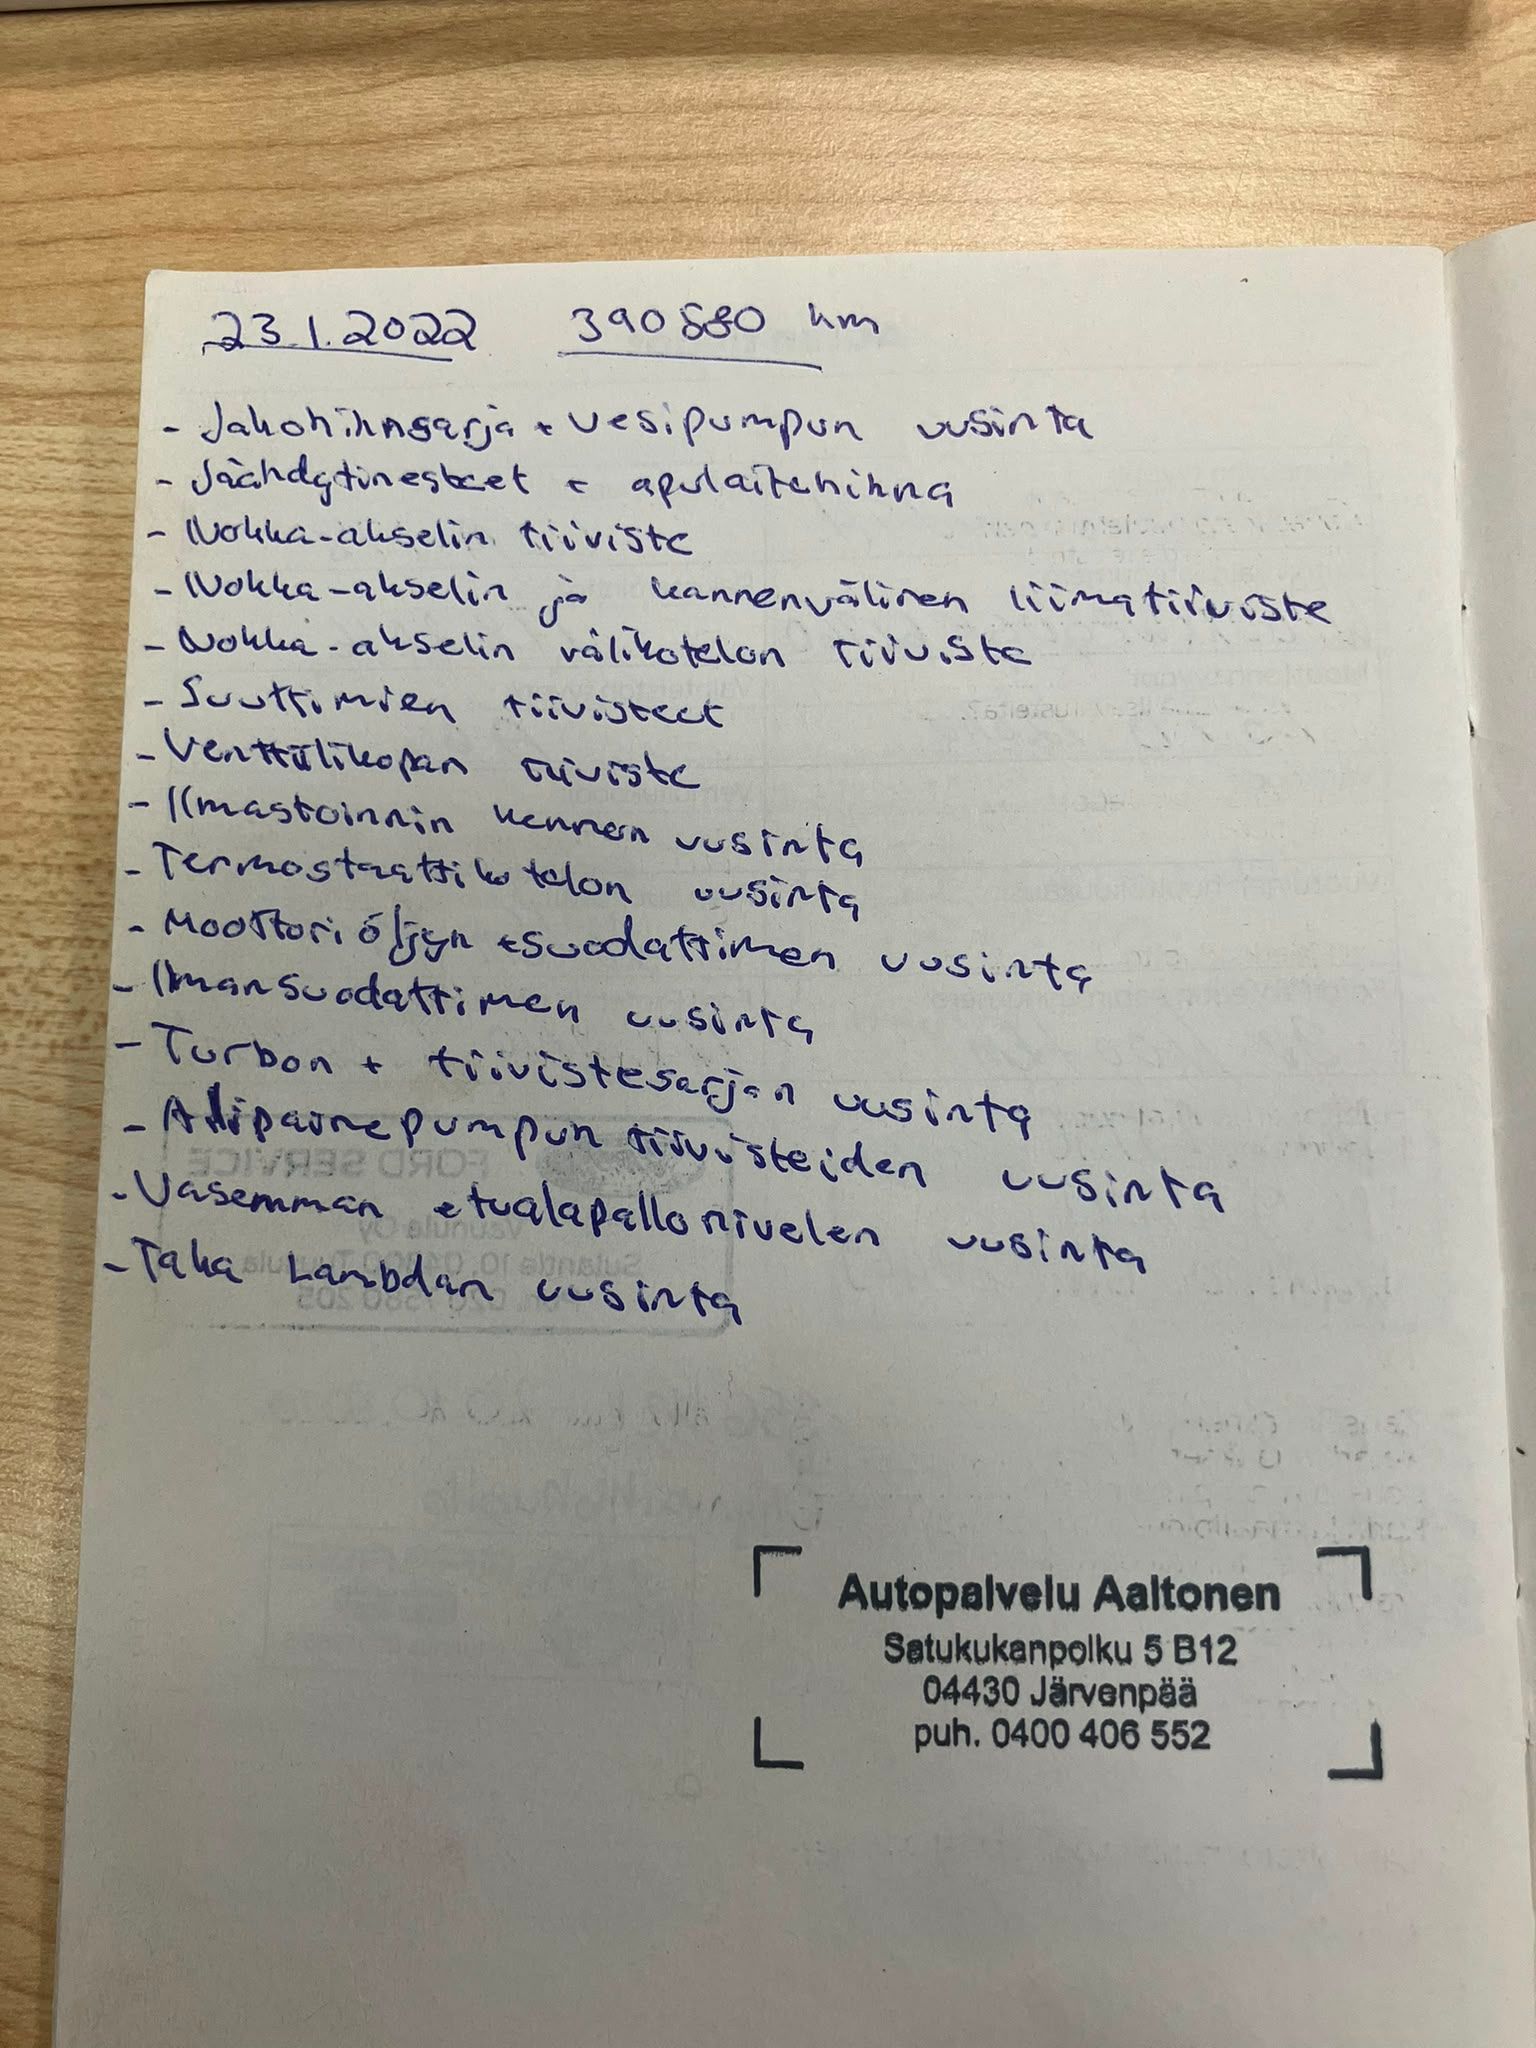 23.1.2022 390580 km
- Jakohihnasarja + vesipumpun uusinta
- Jäähdytinesteet + apulaitehihna
- Nokka-akselin tiiviste
- Nokka-akselin ja kannenvälinen liimatiiviste
- Nokka-akselin välikotelon tiiviste
- Suuttimien tiivisteet
- Venttiilikopan tiiviste
- Ilmastoinnin kennon uusinta
- Termostaattikotelon uusinta
- Moottoriöljyn + suodattimen uusinta
- Ilmansuodattimen uusinta
- Turbon + tiivistesarjan uusinta
- Alipainepumpun tiivisteiden uusinta
- Vasemman etualapallonivelen uusinta
- Taka Lambdan uusinta
FORD SERVICE
Vaunula Oy
Autopalvelu Aaltonen
Satukukanpolku 5 B12
04430 Järvenpää
puh. 0400 406 552